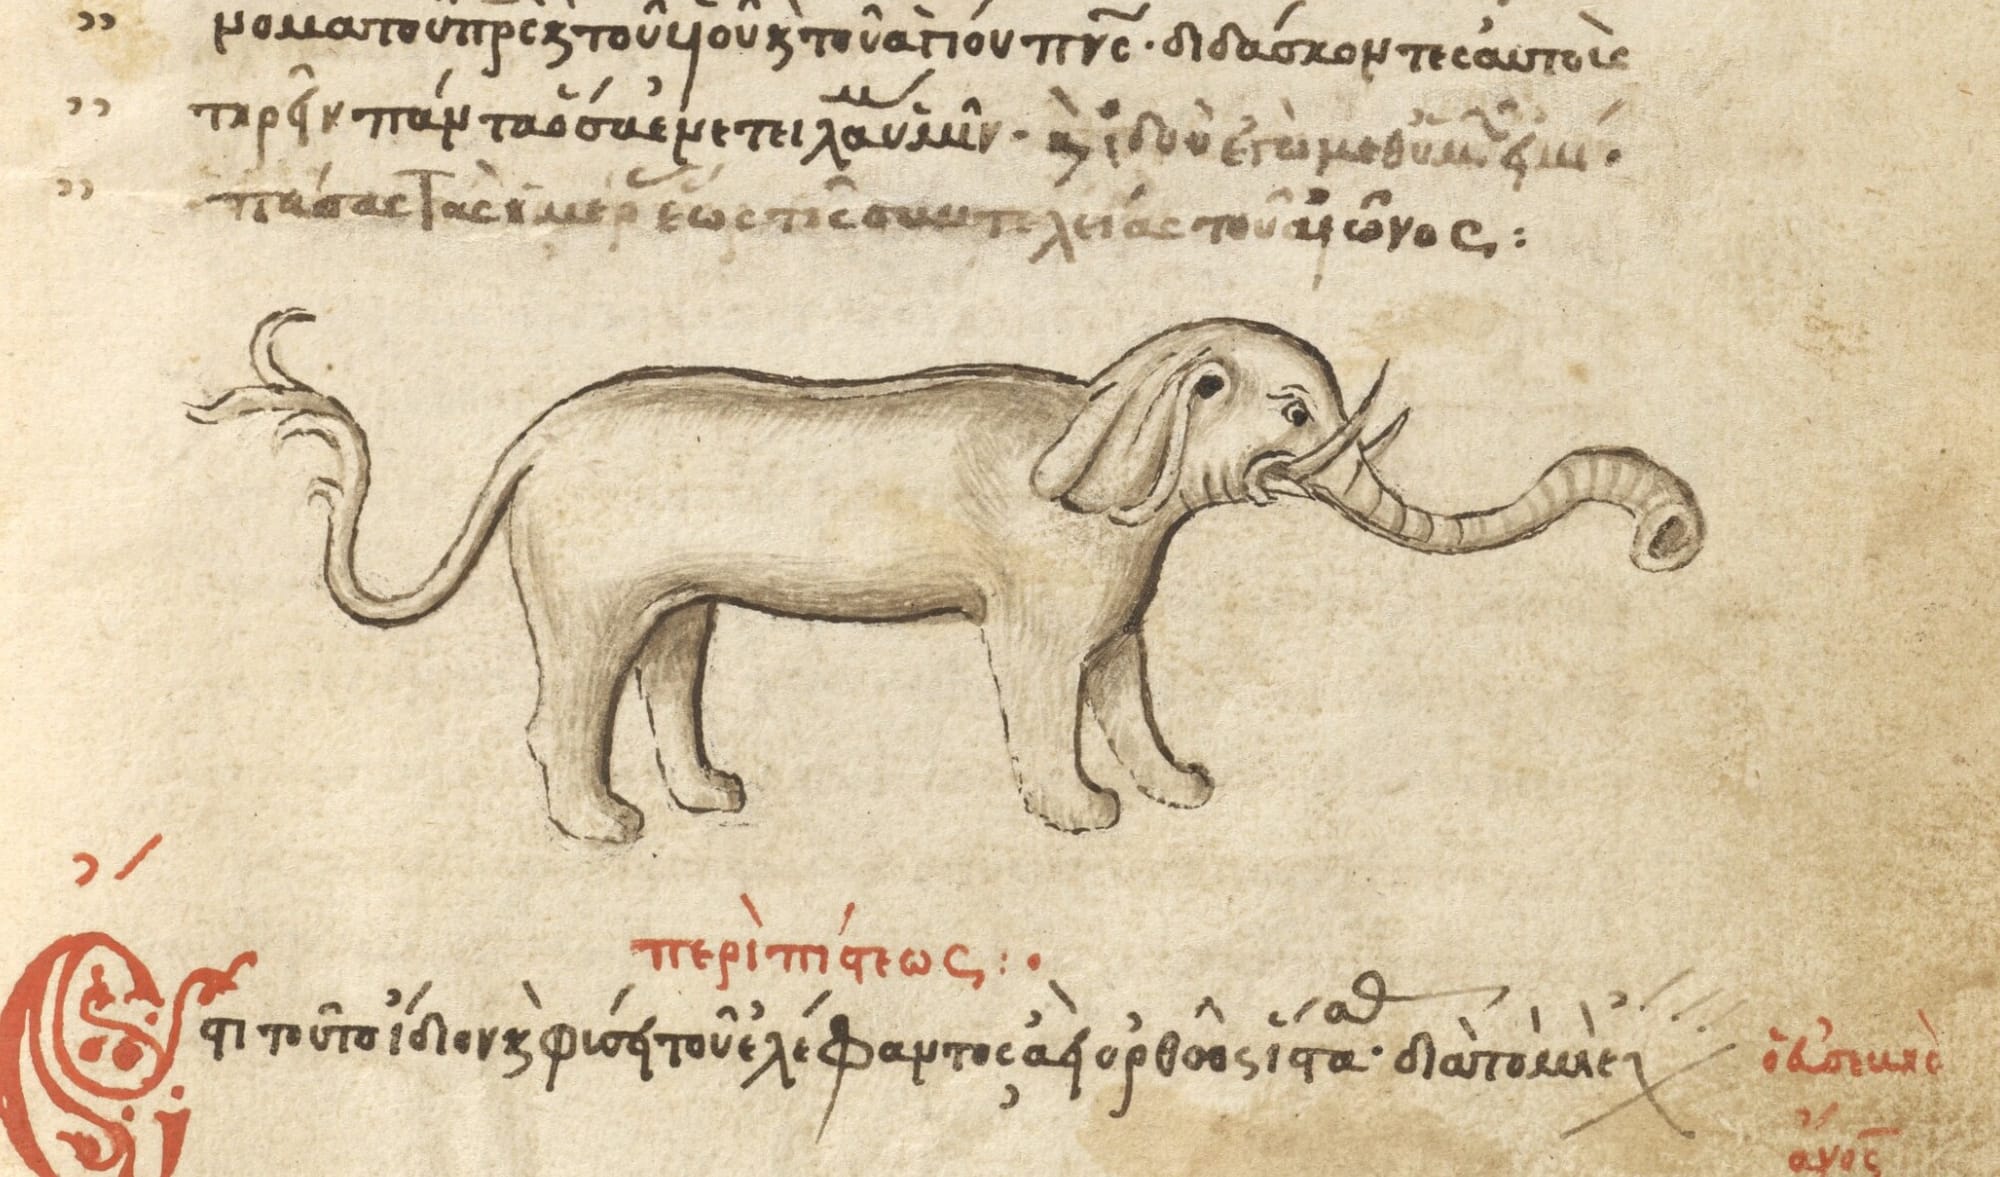 νομα τοῦ πρς κ τοῦ υἱοῦ κ τοῦ ἁγίου πνς· διδάσκοντες αὐτοὺς
τηρεῖν πάντα ὅσα ἐνετειλάμην ὑμῖν· κ ἰδοὺ ἐγὼ μεθ' ὑμῶν εἰμί·
πάσας τὰς ἡμέρ ἕως τῆς συντελείας τοῦ αἰῶνος:
περὶ πίστεως:·
Ἔστι τοῦτο ἴδιον κ φύσει τοῦ ἐλέφαντος ἀεὶ ὀρθὸς ἵσταθ· διὰ τὸ μὴ ἔχ